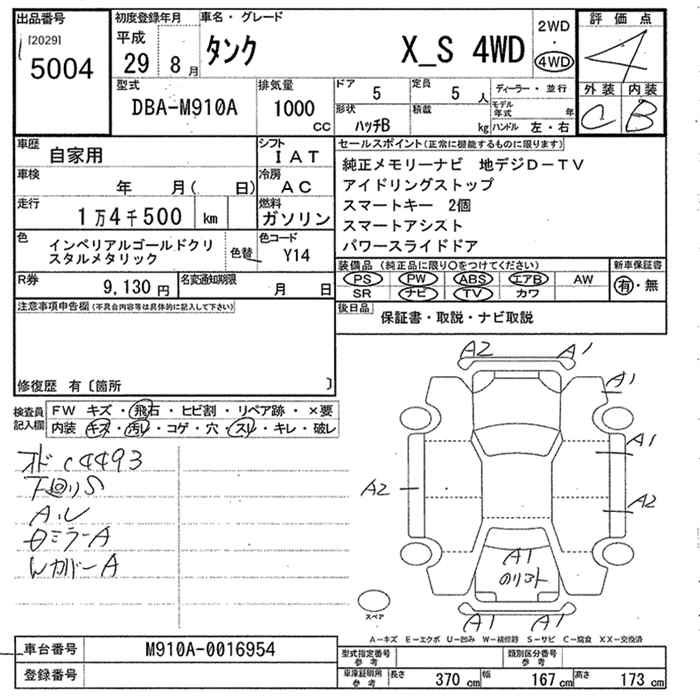 出品番号
[2029]
5004
初度登録年月
平成
29 8月
車名・グレード
タンク X_S 4WD
2WD
・
4WD
評価点
4
外装 内装
C B
型式
DBA-M910A
排気量
1000
cc
ドア
5
定員
5 人
ディーラー・並行
形状
ハッチB
積載
kg
モデル年式 年
ハンドル 左・右
車歴
自家用
シフト
IAT
車検
年 月( 日)
冷房
AC
走行
1万4千500 km
燃料
ガソリン
色
インペリアルゴールドクリ
スタルメタリック
色替
色コード
Y14
R券
9,130 円
名変通知期限
月 日
セールスポイント(正常に機能するものに限ります)
純正メモリーナビ 地デジD-TV
アイドリングストップ
スマートキー 2個
スマートアシスト
パワースライドドア
装備品 (純正品に限り○をつけてください)
PS PW ABS エアB AW
SR ナビ TV カワ
新車保証書
有・無
後日品
保証書・取説・ナビ取説
注意事項申告欄(不具合内容等は具体的に記入して下さい)
修復歴 有〔箇所 〕
検査員
記入欄
FW キズ・飛石・ヒビ割・リペア跡・×要
内装 キズ・汚レ・コゲ・穴・スレ・キレ・破レ
オド C4493
下回りS
A,U
ミラーA
WカバーA
A2 A1
A1
A1
A2
A2
A1
のリコト
A1 A1
スペア
A-キズ E-エクボ U-凹み W-補修跡 S-サビ C-腐食 XX-交換済
車台番号
M910A-0016954
登録番号
型式指定番号
参考
類別区分番号
参考
車庫証明用
参考
長さ 370 cm 幅 167 cm 高さ 173 cm